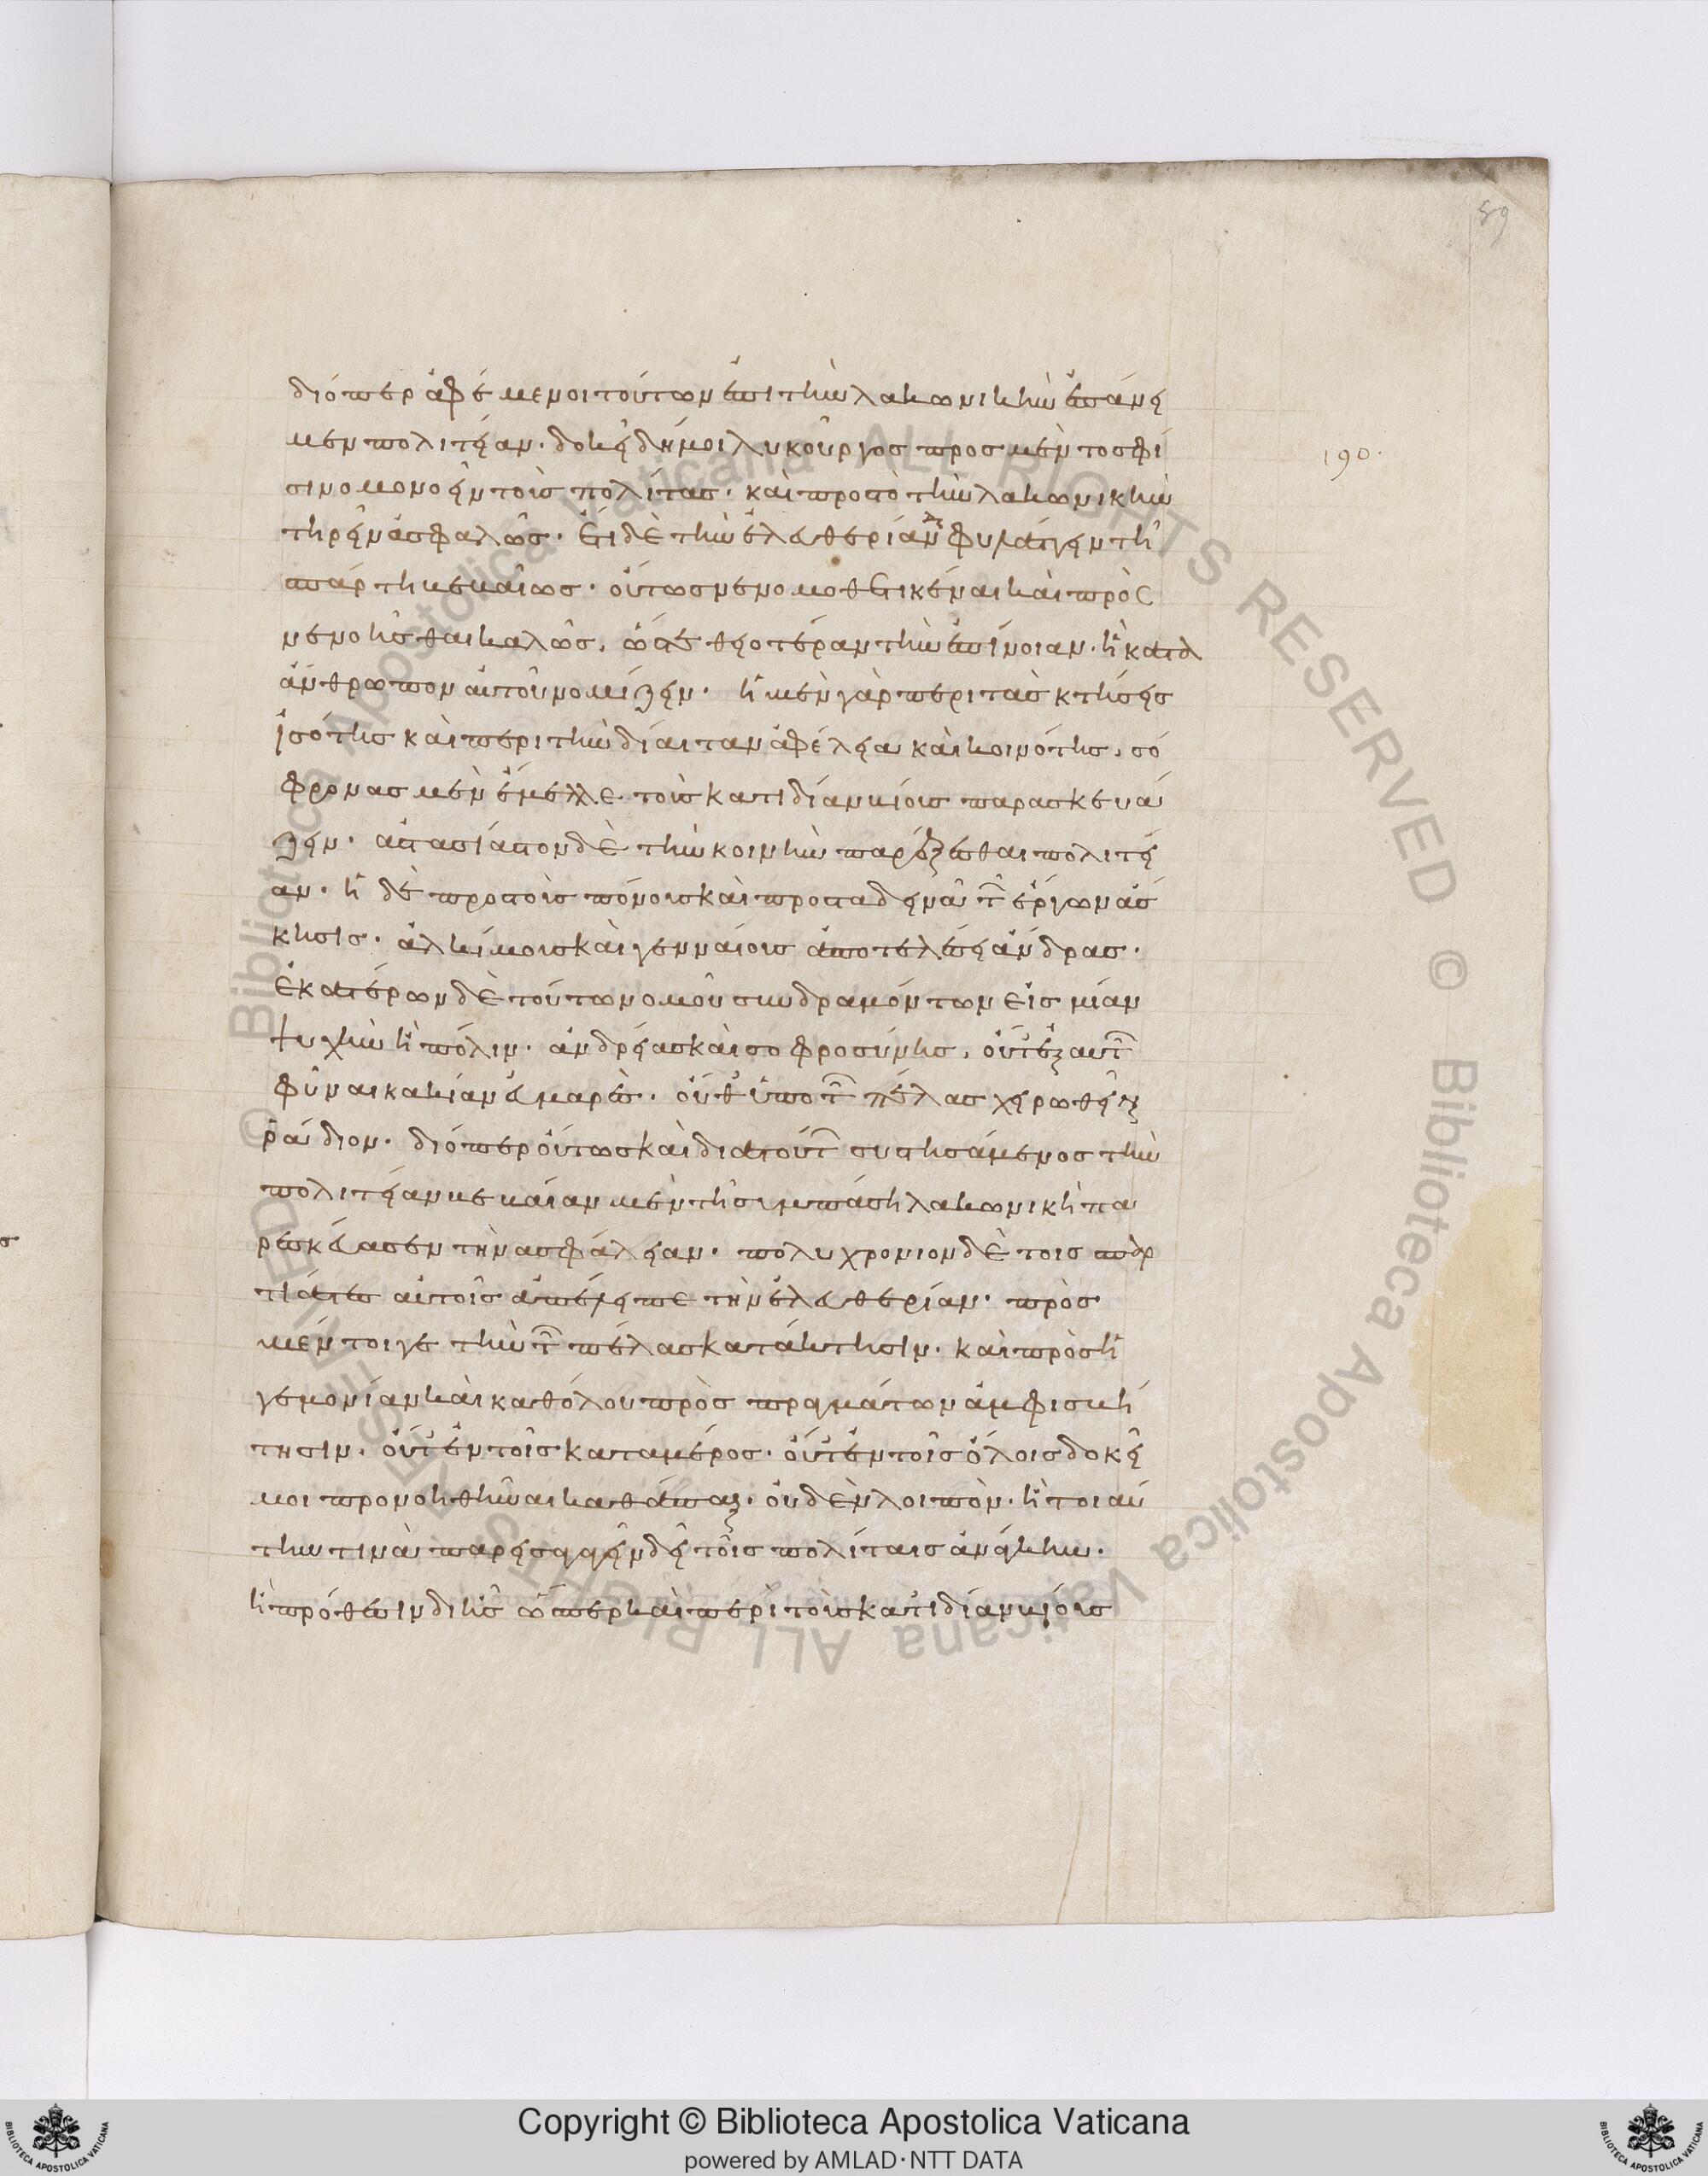 59
διόπερ ἀφέμενοι τούτων ἐπὶ τὴν λακωνικὴν ἐπάνει
μεν πολιτείαν· δοκεῖ δή μοι λυκοῦργος προς μὲν το σφί
σιν ομονοεῖν τοὺς πολίτας· καὶ προς τὸ τὴν λακωνικὴν
τηρεῖν ἀσφαλῶς· ἔτι δὲ τὴν ἐλευθερίαν διαφυλάττειν τῆ
σπάρτη βεβαίως· οὕτως νενομοθετικέναι καὶ προς
νενοῆσθαι καλῶς, ὥστε θειοτέραν τὴν ἐπίνοιαν· ἢ κατὰ
ἄνθρωπον αὐτοῦ νομίζειν· ἡ μὲν γὰρ περὶ τὰς κτήσεις
ἰσότης καὶ περὶ τὴν δίαιταν ἀφέλεια καὶ κοινότης, σώ
φρονας μὲν ἔμελλε τοὺς κατ ιδίαν βίους παρασκευά
ζειν· ἀστασίαστον δὲ τὴν κοινὴν παρέξεσθαι πολιτεί
αν· ἡ δὲ προς τοὺς πόνους καὶ προς τὰ δεινὰ τῶν ἔργων ἄσ
κησις· ἀλκίμους καὶ γενναίους ἀποτελέσειν ἄνδρας·
ἑκατέρων δὲ τούτων ομοῦ συνδραμόντων εἰς μίαν
ψυχὴν ἢ πόλιν· ἀνδρείας καὶ σωφροσύνης, οὔτ ἐξ αυτῶν
φῦναι κακίαν εὐμαρὲς· οὔθ ὑπὸ τῶν πέλας χειρωθῆναι
ῥάδιον· διόπερ οὕτως καὶ διὰ τούτων συστησάμενος τὴν
πολιτείαν βεβαίαν μὲν τῆ συμπάση λακωνικῆ πα
ρεσκεύασεν τὴν ασφάλειαν· πολυχρόνιον δὲ τοις σπαρ
τιάταις αὐτοῖς ἀπέλειπε τὴν ἐλευθερίαν· πρὸς
μέντοιγε τὴν τῶν πέλας κατάκτησιν· καὶ πρὸς ἡ
γεμονίαν καὶ καθόλου πρὸς πραγμάτων ἀμφισβή
τησιν· οὔτ ἐν τοῖς κατα μέρος· οὔτ ἐν τοῖς ὅλοις δοκεῖ
μοι προνοηθῆναι καθάπαξ· οὐδέν λοιπὸν· ἢ τοιαύ
την τινὰ παρεισαγαγεῖν δεῖ τοῖς πολίταις ἀνάγκην·
ἢ πρόθεσιν δι ἧς ὥσπερ καὶ περὶ τοὺς κατ ιδίαν βίους
190.
Copyright © Biblioteca Apostolica Vaticana
powered by AMLAD·NTT DATA
© Biblioteca Apostolica Vaticana ALL RIGHTS RESERVED © Biblioteca Apostolica Vaticana ALL RIGHTS RESERVED